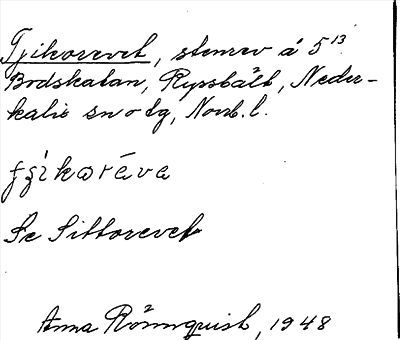 Tjikorevet, stenrev å 5 13
Brdskatan, Ryssbält, Neder-
kalix sn o tg, Norrb. l.
fʒikaréva
Se Sittorevet
Anna Rönnquist, 1948